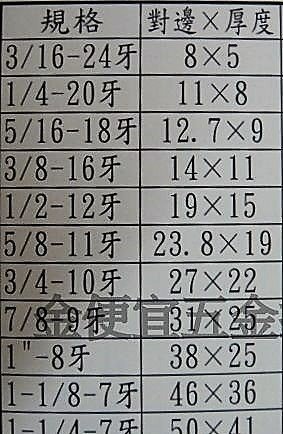 規格 對邊×厚度
3/16-24牙 8×5
1/4-20牙 11×8
5/16-18牙 12.7×9
3/8-16牙 14×11
1/2-12牙 19×15
5/8-11牙 23.8×19
3/4-10牙 27×22
7/8-9牙 31×25
金便宜五金
1"-8牙 38×25
1-1/8-7牙 46×36
1-1/4-7牙 50×41